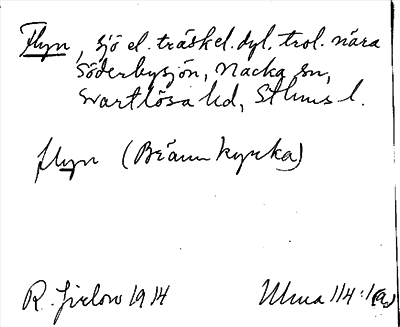 Flyn, sjö el. träsk el. dyl. trol. nära
Söderbysjön, Nacka sn,
Svartlösa hd, Sthms l.
flyn (Brännkyrka)
R. Jirlow 1914
Ulma 114:1(a)